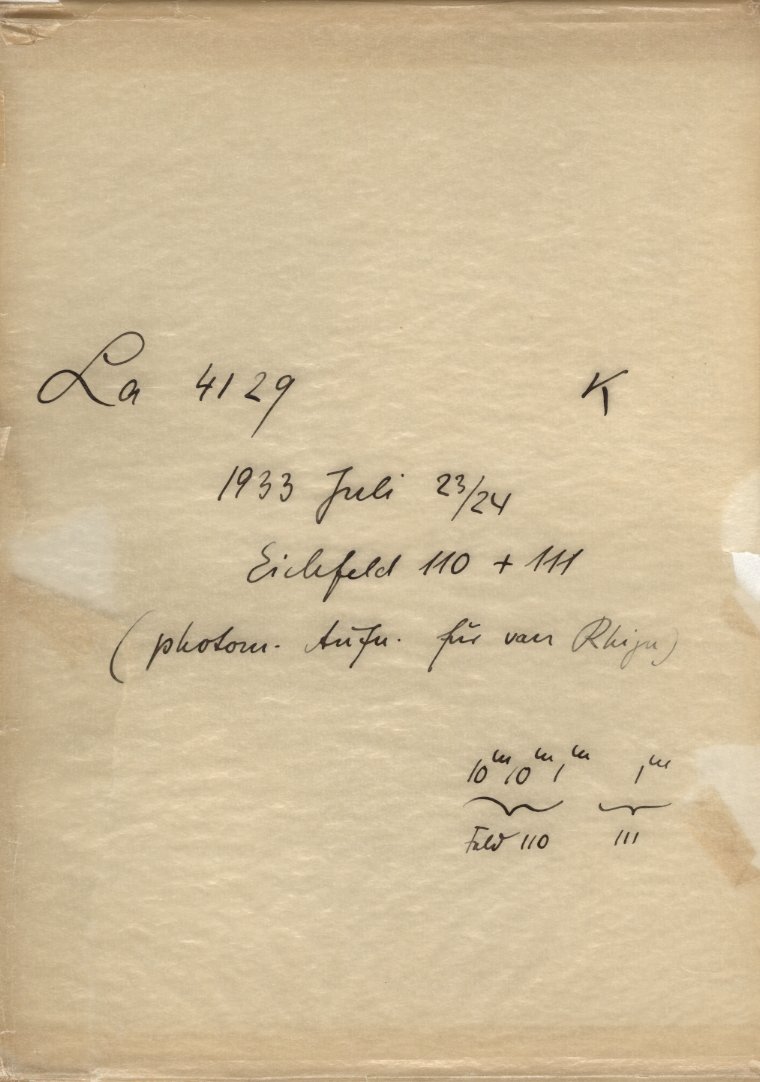 La 4129 K
1933 Juli 23/24
Eichfeld 110 + 111
(photom. Aufn. für van Rhijn)
10ᵐ 10ᵐ 1ᵐ 1ᵐ
Feld 110 111